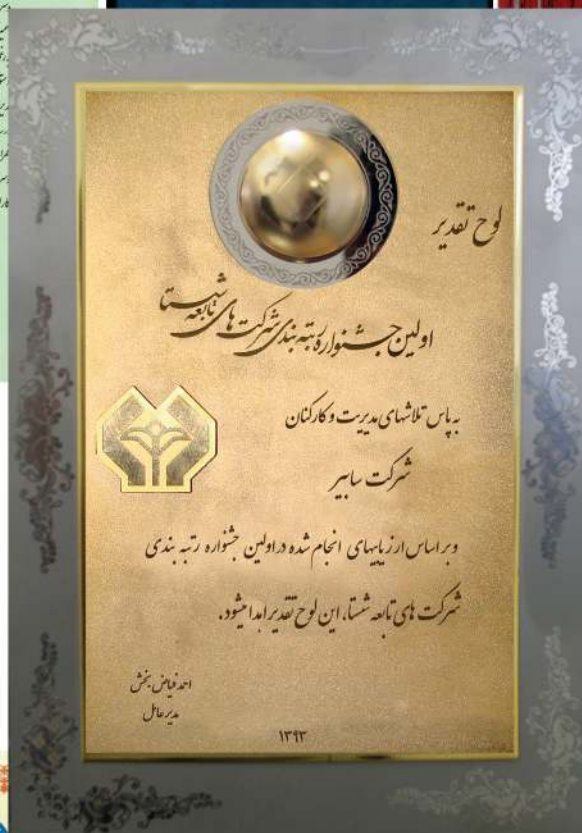 لوح تقدیر
اولین جشنواره رتبه بندی شرکت های تابعه شستا
به پاس تلاشهای مدیریت و کارکنان
شرکت سابیر
و بر اساس ارزیابیهای انجام شده در اولین جشنواره رتبه بندی
شرکت های تابعه شستا، این لوح تقدیر اهدا میشود.
احمد فیاض بخش
مدیر عامل
۱۳۹۳